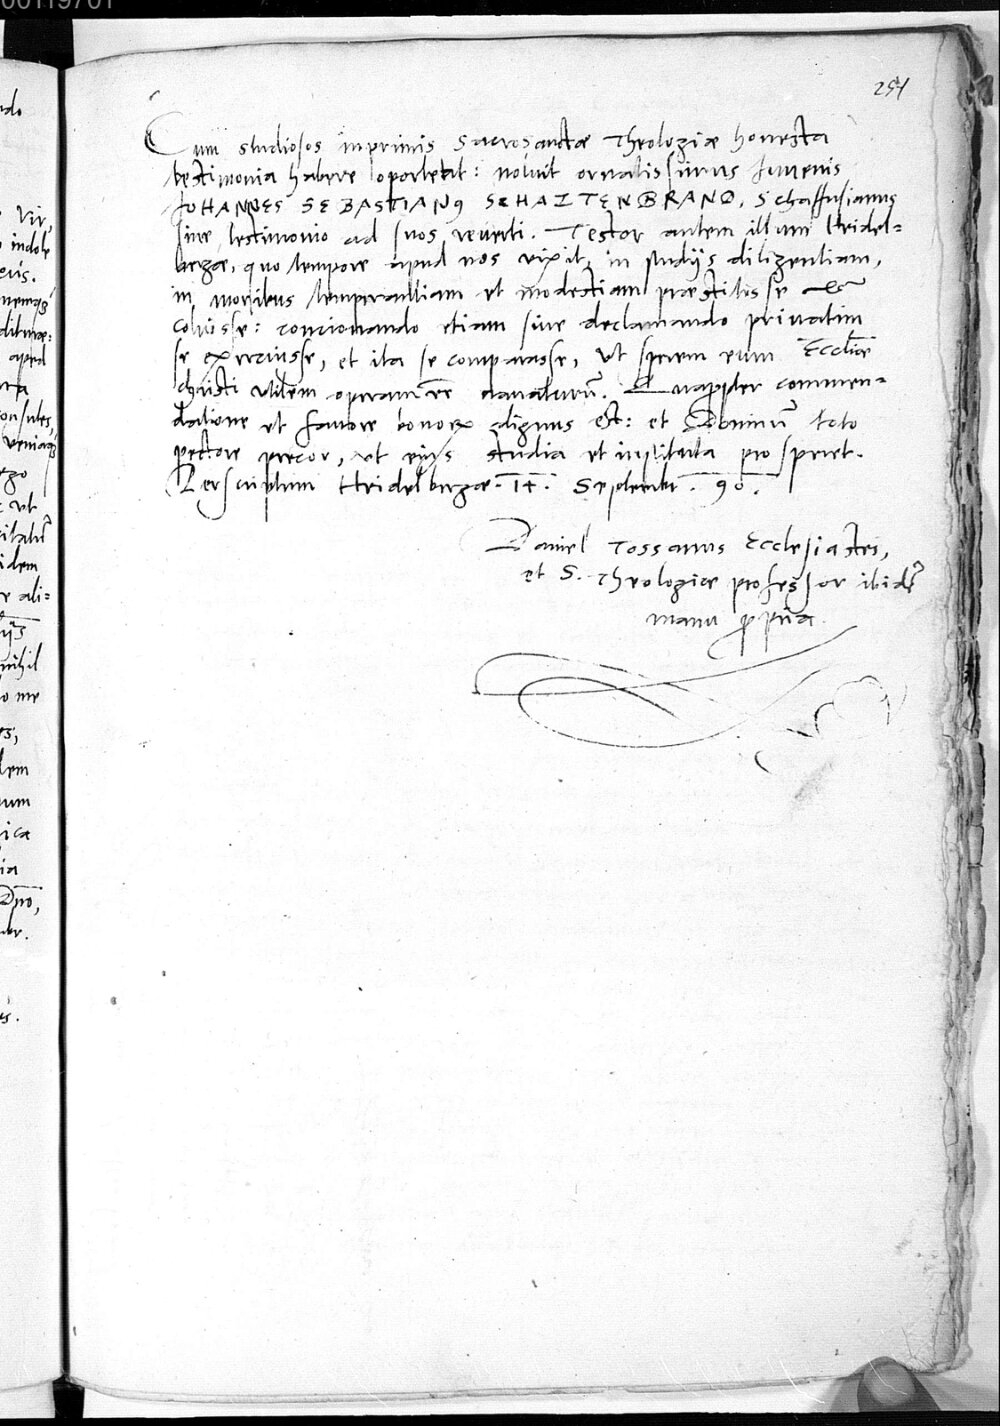 00119701
251
Cum studiosos inprimis Sacrosanctæ Theologiæ honesta
testimonia habere oporteat: noluit ornatissimus Juvenis
JOHANNES SEBASTIANꝰ SCHAITENBRAND, Schaffusianus
sine testimonio ad suos reverti. Testor autem illum Heidel=
bergæ, quo tempore apud nos vixit, in studijs diligentiam,
in moribus temperantiam et modestiam præstitisse et
coluisse: concionando etiam sive declamando privatim
se exercuisse, et ita se comparasse, ut spem eum Eccliæ
Christi utilem operam re navaturū. Quappter commen=
datione et favore bonorꝝ dignus est: et Dominū toto
pectore precor, ut eius studia et instituta prosperet.
Perscriptum Heidelbergæ. 14. Septembr. 90.
Daniel Tossanus Ecclesiastes,
et S. Theologiæ professor ibidē
manu ꝓpria
do
Vir
indole
apud
consules,
ut
idem
ali=
nihil
me
ica
Dno,